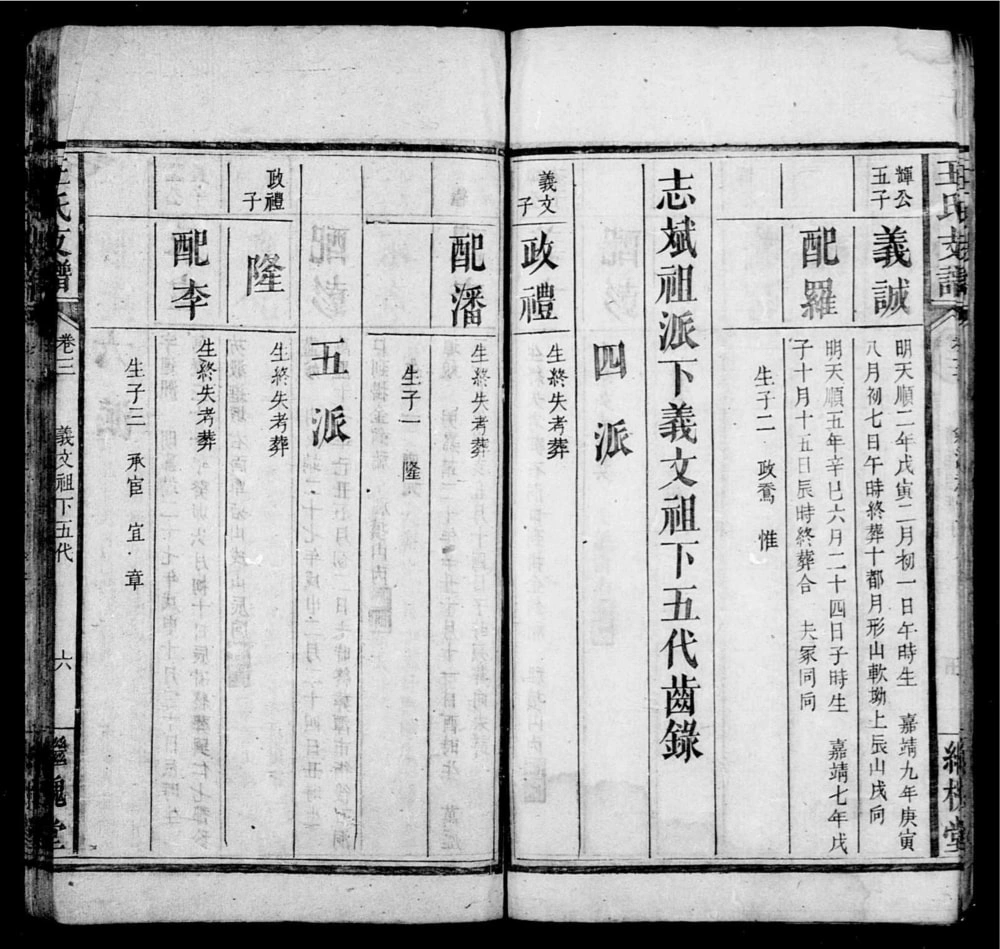 王氏支譜
輝公
玉子
義誠
明天順二年戊寅二月初一日午時生 嘉靖九年庚寅
八月初七日午時終葬十都月形山軟坳上辰山戌向
配羅
明天順五年辛巳六月二十四日子時生 嘉靖七年戊
子十月十五日辰時終葬合 夫冢同向
生子二 政鶱 惟
志斌祖派下義文祖下五代齒錄
四派
義文
子
政禮
生終失考葬
配潘
生終失考葬
生子一 隆
五派
政禮
子
隆
生終失考葬
配李
生終失考葬
生子三 承宦 宜 章
王氏支譜
卷三 義文祖下五代 六
繼槐堂